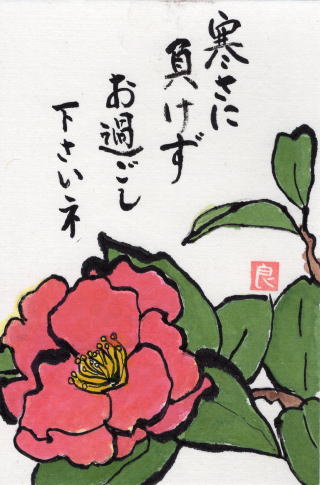 寒さに
負けず
お過ごし
下さいネ
良